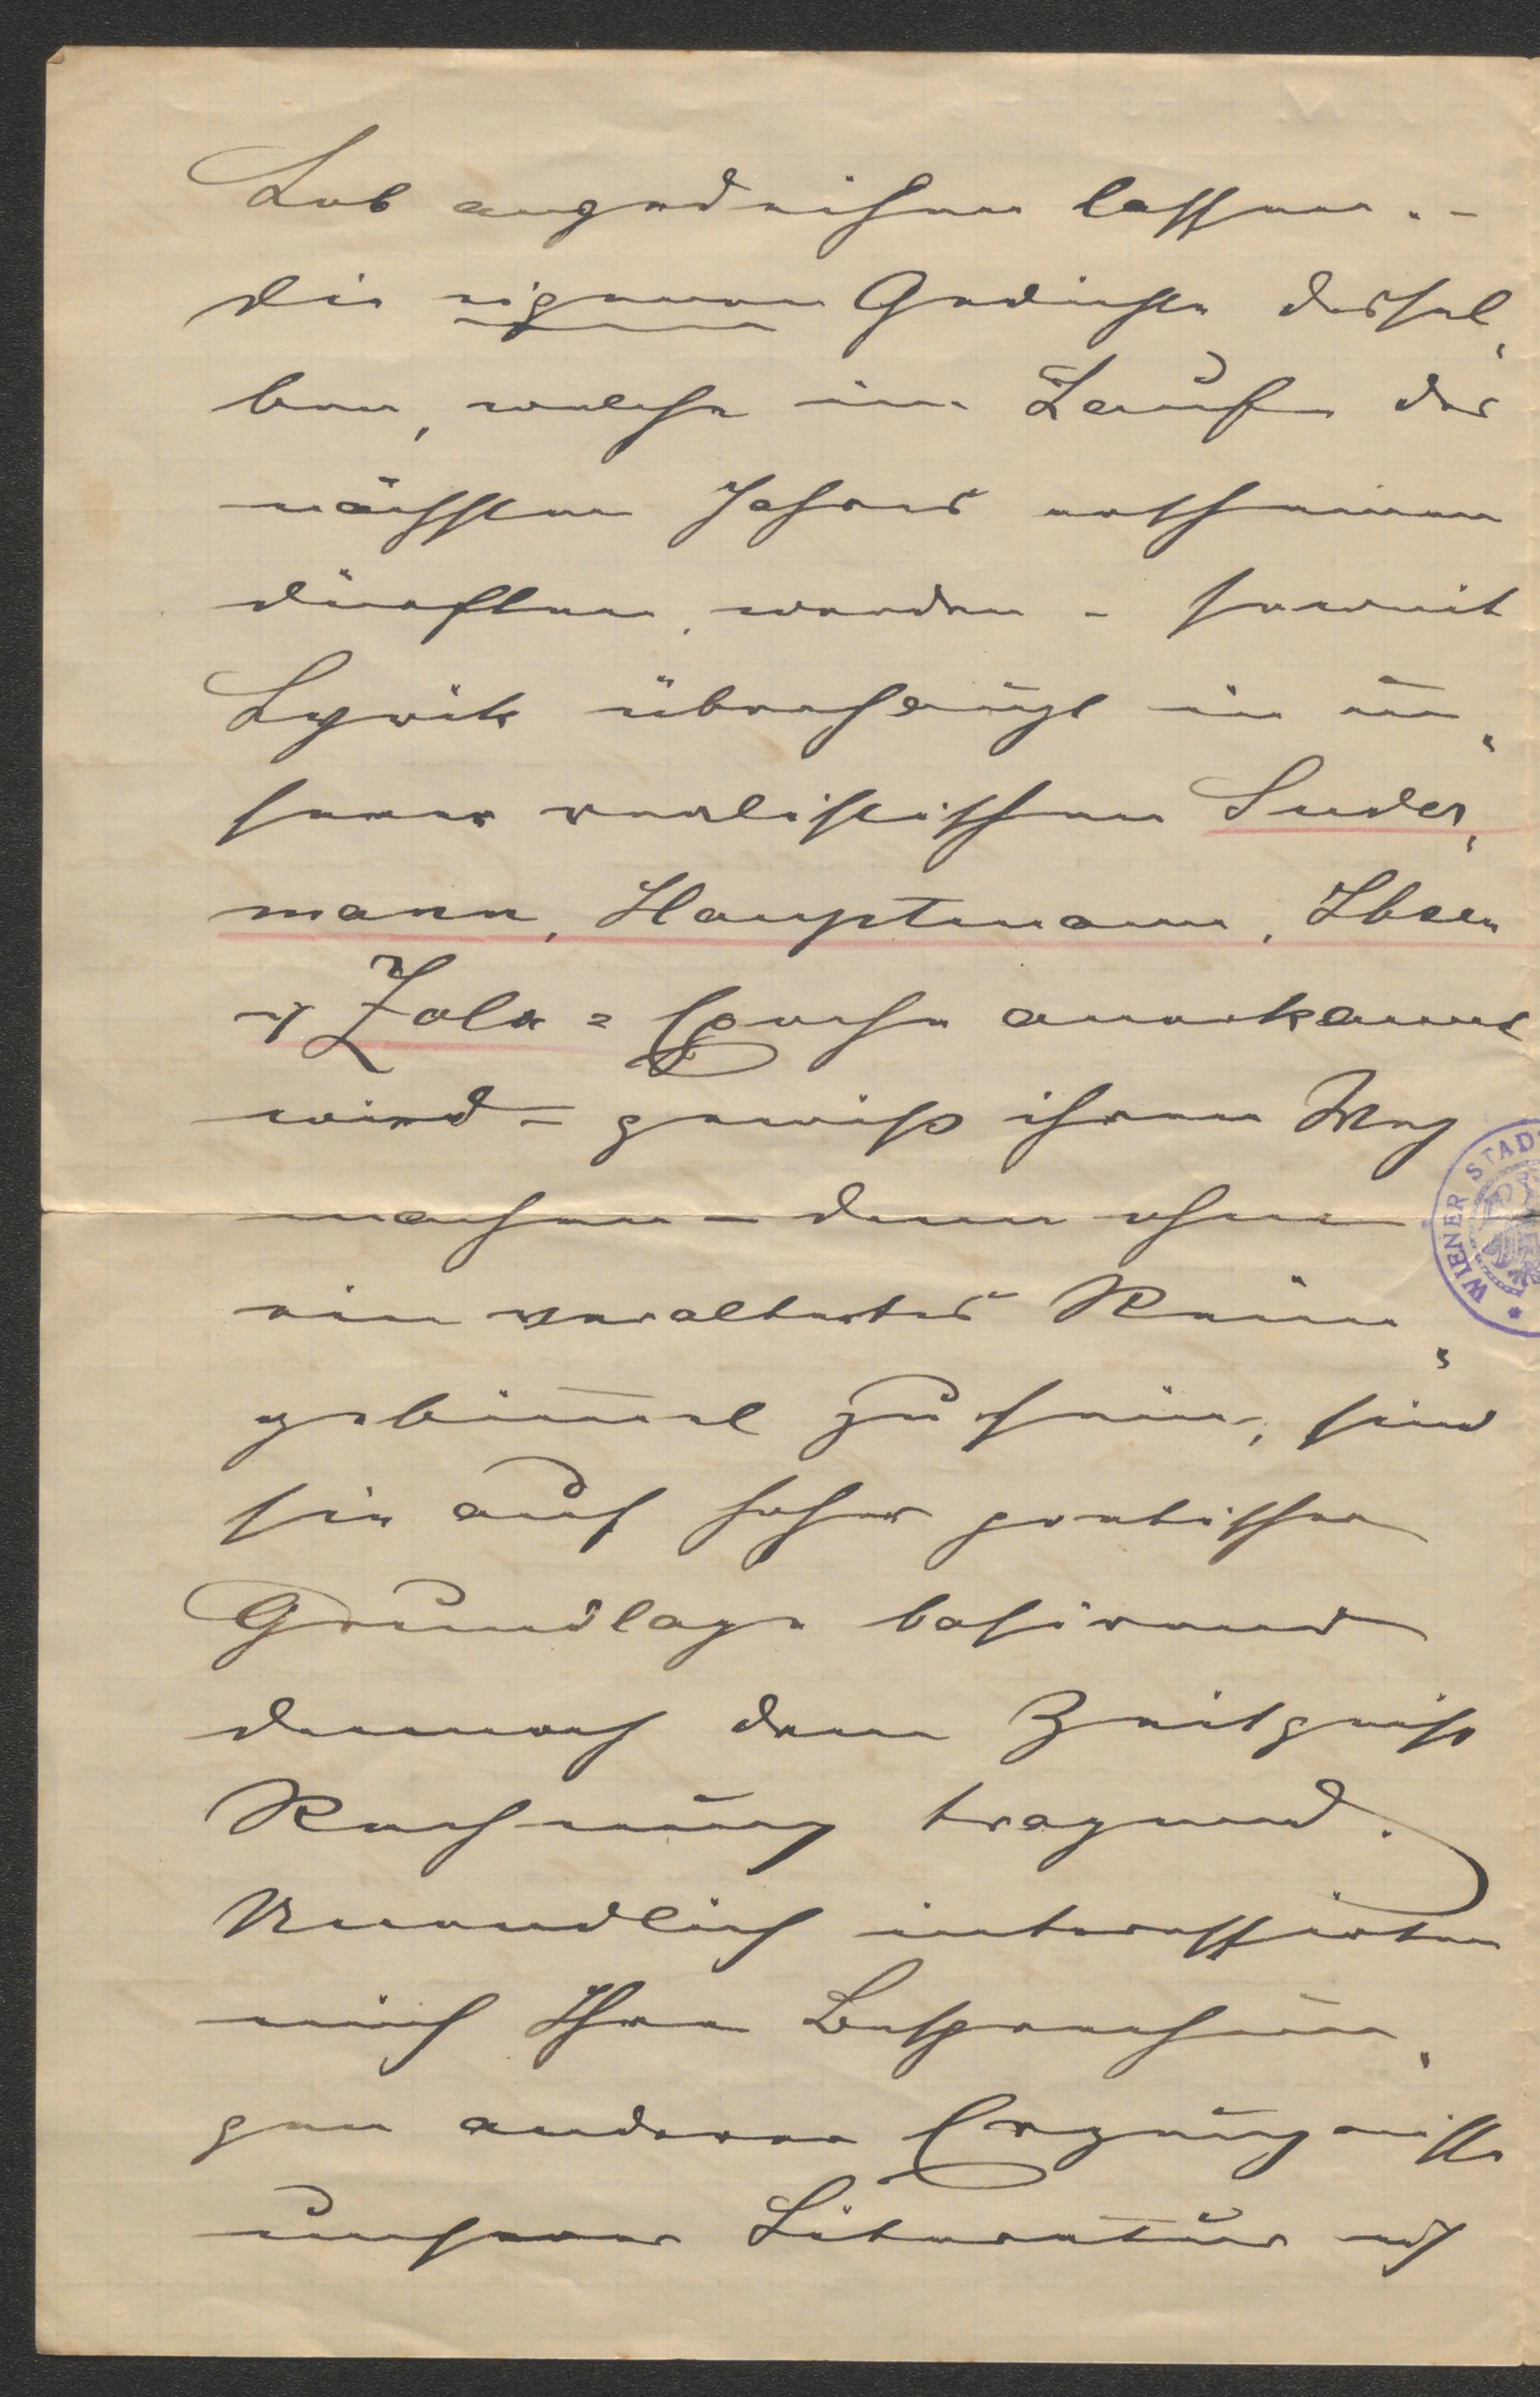 Lob angedeihen lassen. –
Die eigenen Gedichte dersel„
ben, welche im Laufe des
nächsten Jahres erscheinen
dürften, werden – soweit
Lyrik überhaupt in un„
serer realistischen Suder„
mann, Hauptmann, Ibsen
u Zola = Epoche anerkannt
wird – gewiß ihren Weg
machen – denn ohne
ein veraltertes Reim„
gebim̅el zu sein, sind
sie auf hoher poetischer
Grundlage basirend
dennoch dem Zeitgeist
Rechnung tragend.
Unendlich interessirten
mich Ihre Besprechun„
gen anderer Erzeugnisse
unserer Literatur und
WIENER STAD